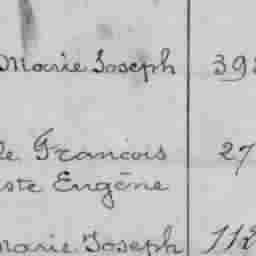 Marie Joseph 398
le François 27
iste Eugène
Marie Joseph 112